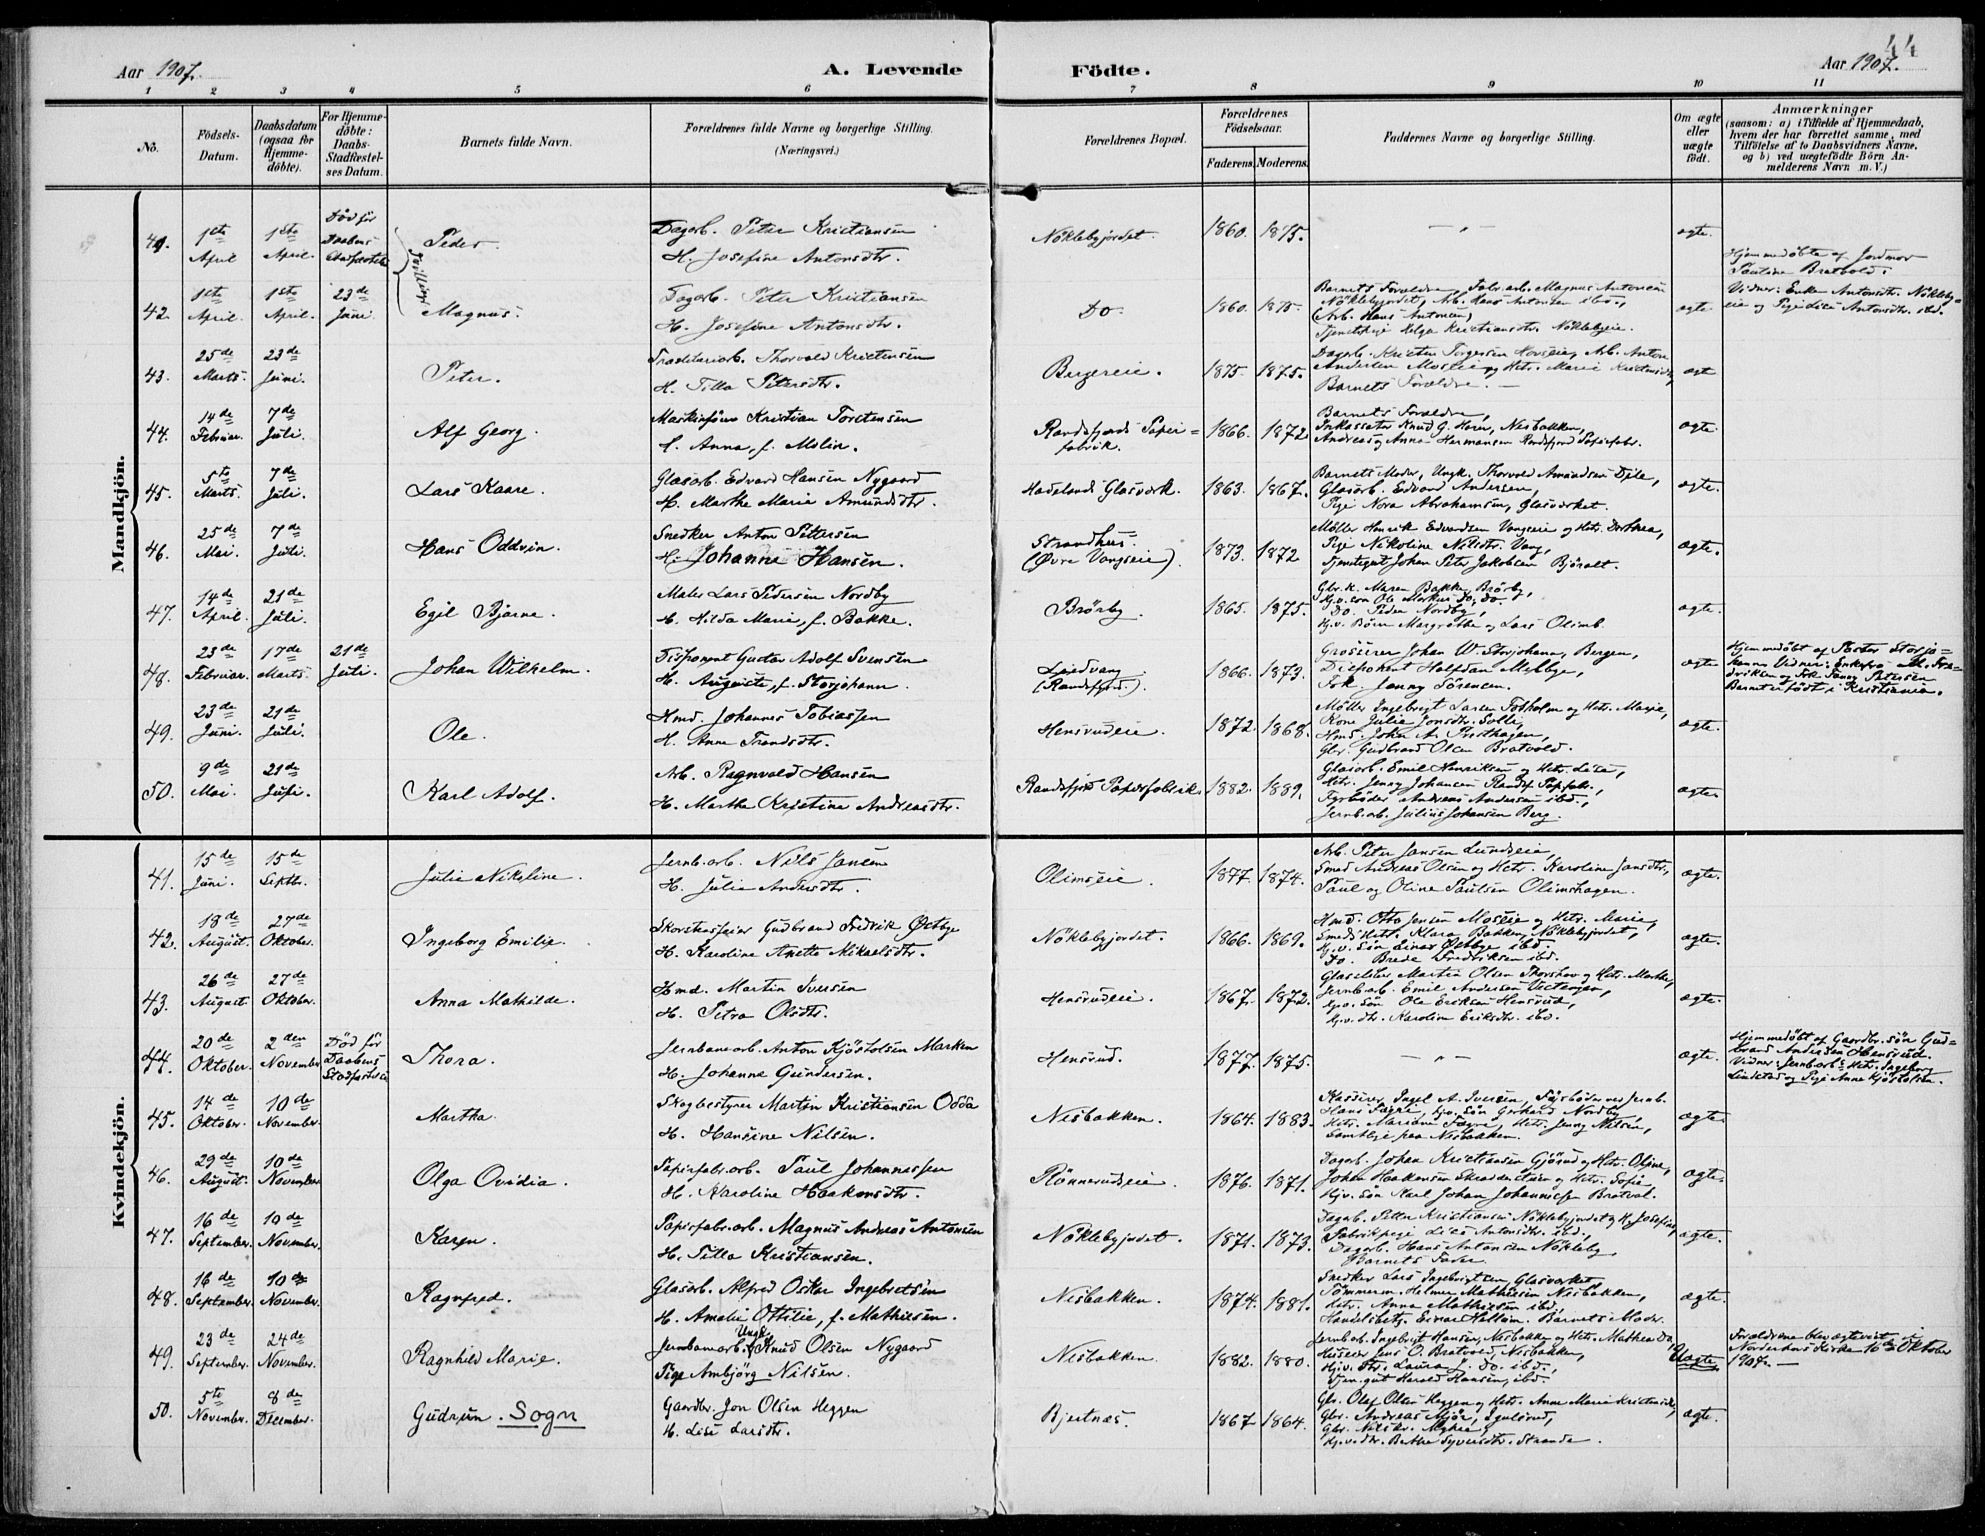 44
Aar 1907.
A. Levende
Födte.
Aar 1907.
1 2 3 4 5 6 7 8 9 10 11
No.
Födsels-
Datum.
Daabsdatum
(ogsaa for
Hjemme-
döbte).
For Hjemme-
döbte:
Daabs-
Stadfæstel-
ses Datum.
Barnets fulde Navn.
Forældrenes fulde Navne og borgerlige Stilling.
(Næringsvei.)
Forældrenes Bopæl.
Forældrenes
Födselsaar.
Faderens.
Moderens.
Faddernes Navne og borgerlige Stilling.
Om ægte
eller
uægte
födt.
Anmærkninger
(saasom: a) i Tilfælde af Hjemmedaab,
hvem der har forrettet samme, med
Tilföielse af to Daabsvidners Navne,
og b) ved uægtefödte Börn An-
melderens Navn m. V.)
Mandkjön.
41. 1ste April 1ste April. Död før Daabens Stadfæstelse
Peder.
Tvillinger
Dagarb. Peter Kristiansen
H. Josefine Antonsdtr.
Nöklebyjordet. 1860. 1875. — „ — ægte.
Hjemmedøbte af Jordmor
Pauline Bratvold.
Vidner: Enke Antonsdtr. Nökleby-
eie og Pige Lise Antonsdtr. ibd.
42. 1ste April. 1ste April. 23de Juni.
Magnus.
Dagarb. Peter Kristiansen
H. Josefine Antonsdtr.
Do. 1860. 1875.
Barnets Forældre, Fabr.arb. Magnus Antonsen
Nöklebyjordet, Arb. Hans Antonsen ibd.,
(Arb. Hans Antonsen)
Tjenestepige Helga Kristiansdtr. Nöklebyeie.
ægte
43. 25de Marts. 23de Juni.
Peter.
Thorvald Kristensen
H. Tilla Petersdtr.
Bergereie. 1875. 1875.
Dagarb. Kristen Torgersen Hovseie, Arb. Anton
Andersen Moseie og Hstr. Marie Kristensdtr,
Barnets Forældre. —
ægte
44. 14de Februar. 7de Juli.
Alf Georg.
Maskinfører Kristian Torstensen
H. Anna, f. Molin.
Randsfjords Papir=
fabrik. 1866. 1872
Barnets Forældre,
Inkassator Knud G. Horn, Nisbakken,
Andreas og Anna Hermansen Randsfjord Papirfabr.
ægte.
45. 5te Marts. 7de Juli.
Lars Kaare.
Glasarb. Edvard Hansen Nygaard
H. Marthe Marie Amundsdtr.
Hadelands Glasværk. 1863. 1867.
Barnets Moder, Ungk. Thorvald Amundsen Dæle,
Glasarb. Edvard Andersen,
Pige Nora Abrahamsen, Glasværket.
ægte.
46. 25de Mai. 7de Juli.
Hans Oddvin.
Snedker Anton Pettersen
H. Johanne Hansen.
Strandhus.
(Øvre Vangseie). 1873. 1872
Möller Henrik Edvardsen Vangseie og Hstr. Dorthea,
Pige Nikoline Nilsdtr. Vang,
Tjenestegut Johan Peter Jakobsen Björalt.
ægte.
47. 14de April. 21de Juli.
Egil Bjarne.
Maler Lars Pedersen Nordby
H. Hilda Marie, f. Bakke.
Brörby. 1865. 1875.
Gbr.k. Maren Bakke, Brörby,
Hjv. sön Ole Markus Do, do.
Do. Peder Nordby,
Hjv. Børn Margrethe og Lars Olimb.
ægte.
48. 23de Februar. 17de Marts. 21de Juli.
Johan Wilhelm.
Disponent Gustav Adolf Svensen
H. Auguste, f. Storjohann.
Lindvang
(Randsfjord.). 1866. 1873.
Grosserer Johan W. Storjohann, Bergen,
Disponent Halfdan Melbye,
Frk. Jenny Sörensen.
ægte
Hjemmedøbt af Pastor Storjo=
hann. Vidner: Enkefru M. Fre=
driksen og Frk. Fanny Petersen
Barnet er født i Kristiania.
49. 23de Juni. 21de Juli.
Ole.
Hmd. Johannes Tobiassen
H. Anne Trondsdtr.
Hensrudeie. 1872. 1868.
Möller Ingebrigt Larsen Fosholm og Hstr. Marie,
Kone Julie Jonsdtr. Solli,
Hmd. Johan A. Presthagen,
Gbr. Gudbrand Olsen Bratvold.
ægte.
50. 9de Mai. 21de Juli.
Karl Adolf.
Arb. Ragnvald Hansen
H. Marthe Kristine Andreasdtr.
Randsfjord Papirfabrik. 1882. 1889.
Glasarb. Emil Henriksen og Hstr. Lise,
Hstr. Jenny Johansen Randsf. Papfabr.,
Fyrbøder Andreas Andersen ibd.,
Jernb.arb. Julius Johansen Berg.
ægte.
Kvindekjön.
41. 15de Juni. 15de Septbr.
Julie Nikoline.
Jernb.arb. Nils Jansen
H. Julie Andersdtr.
Olimseie. 1877. 1874.
Arb. Peter Jansen Lundseie,
Smed Andreas Olsen og Hstr. Karoline Jansdtr,
Paul og Oline Paulsen Olimshagen.
ægte.
42. 18de August. 27de Oktober.
Ingeborg Emilie.
Skorstensfeier Gudbrand Fredrik Østbye
H. Karoline Anette Mikaelsdtr.
Nöklebyjordet. 1866. 1869.
Hmd. Otto Jensen Moseie og Hstr. Marie,
Smeds Hstr. Klara Bakken, Nöklebyjordet,
Hj.v. sön Einar Østbye ibd.
Do. Brede Fredriksen ibd.
ægte.
43. 26de August. 27de Oktober.
Anna Mathilde.
Hmd. Martin Iversen
H. Petra Olsdtr.
Hensrudeie. 1867. 1872.
Glassliber Martin Olsen Thorshov og Hstr. Marthe,
Jernb.arb. Emil Andersen Vestengen,
Hjv. sön Ole Eriksen Hensrud,
Hj.v. dtr. Karoline Eriksdtr. ibd.
ægte.
44. 20de Oktober. 2den November. Død før Daabens Stadfæstelse
Thora.
Jernbanearb. Anton Kjöstolsen Marken
H. Johanne Gundersen.
Hensrud. 1877. 1875. — „ — ægte.
Hjemmedøbt af Gaardbr. sön Gud=
brand Andersen Hensrud.
Vidner: Jernb.arb. Hstr. Ingeborg
Lindstad og Pige Anne Kjöstolsen.
45. 14de Oktober. 10de November.
Martha.
Skogbestyrer Martin Kristiansen Odda
H. Hansine Nilsen.
Nisbakken. 1864. 1883.
Kasserer Ingel A. Iversen,
Hans Fagre, hjv. sön Gerhard Nordby,
Hstr. Mariane Fagre, Hstr. Jenny Nilsen,
Samtlige paa Nisbakken.
ægte.
46. 29de August. 10de November.
Olga Ovidia.
Papirfabr.arb. Paul Johannessen
H. Karoline Haakensdtr.
Rönnerudseie. 1876. 1871.
Dagarb. Johan Kristiansen Gjörud og Hstr. Oline,
Johan Haakensen Skredderstuen og Hstr. Sofie,
Hjv. Sön Karl Johan Johannessen Bratval.
ægte.
47. 16de September. 10de November.
Karen.
Papirfabr.arb. Magnus Andreas Antonsen
H. Tilla Kristiansen.
Nöklebyjordet. 1871. 1873.
Dagarb. Petter Kristiansen Nöklebyjordet og H. Josefine,
Fabrikpige Lise Antonsdtr. ibd.,
Dagarb. Hans Antonsen Nökleby
Barnets Fader.
ægte.
48. 16de September. 10de November.
Ragnfred.
Glasarb. Alfred Oskar Ingebretsen
H. Amalie Ottilie, f. Mathiesen.
Nisbakken. 1874. 1881.
Snedker Lars Ingebrigtsen Glasværket,
Tömmerm. Helmer Mathiesen Nisbakken,
Hstr. Anna Mathiesen ibd,
Handelsbetj. Einar Hellum. Barnets Moder.
ægte.
49. 23de September. 24de November.
Ragnhild Marie.
Jernbanearb. Ungk. Knud Olsen Nygaard
Pige Ambjörg Nilsen.
Nisbakken. 1882. 1880.
Jernb.arb. Ingebrigt Hansen, Nisbakken og Hstr. Mathea Do,
Huseier Jens O. Bratvold, Nisbakken,
Hjv. Dtr. Laura J. Do. ibd.,
Tjen.gut Harald Hansen, ibd.
Uægte
Forældrene blev ægteviet i
Norderhov Kirke 10de Oktober
1907. —
50. 5te November. 8de December.
Gudrun. Sogn
Gaardbr. Jon Olsen Heggen
H. Lise Larsdtr.
Bjertnæs. 1867 1864.
Gbr. Olaf Olsen Heggen og Hstr. Anne Marie Kristensdtr,
Gbr. Andreas Mjør, Igulsrud,
Gbr. Nils Kr. Myhre,
Hj.v. dtr. Berthe Syversdtr. Stranda.
ægte.